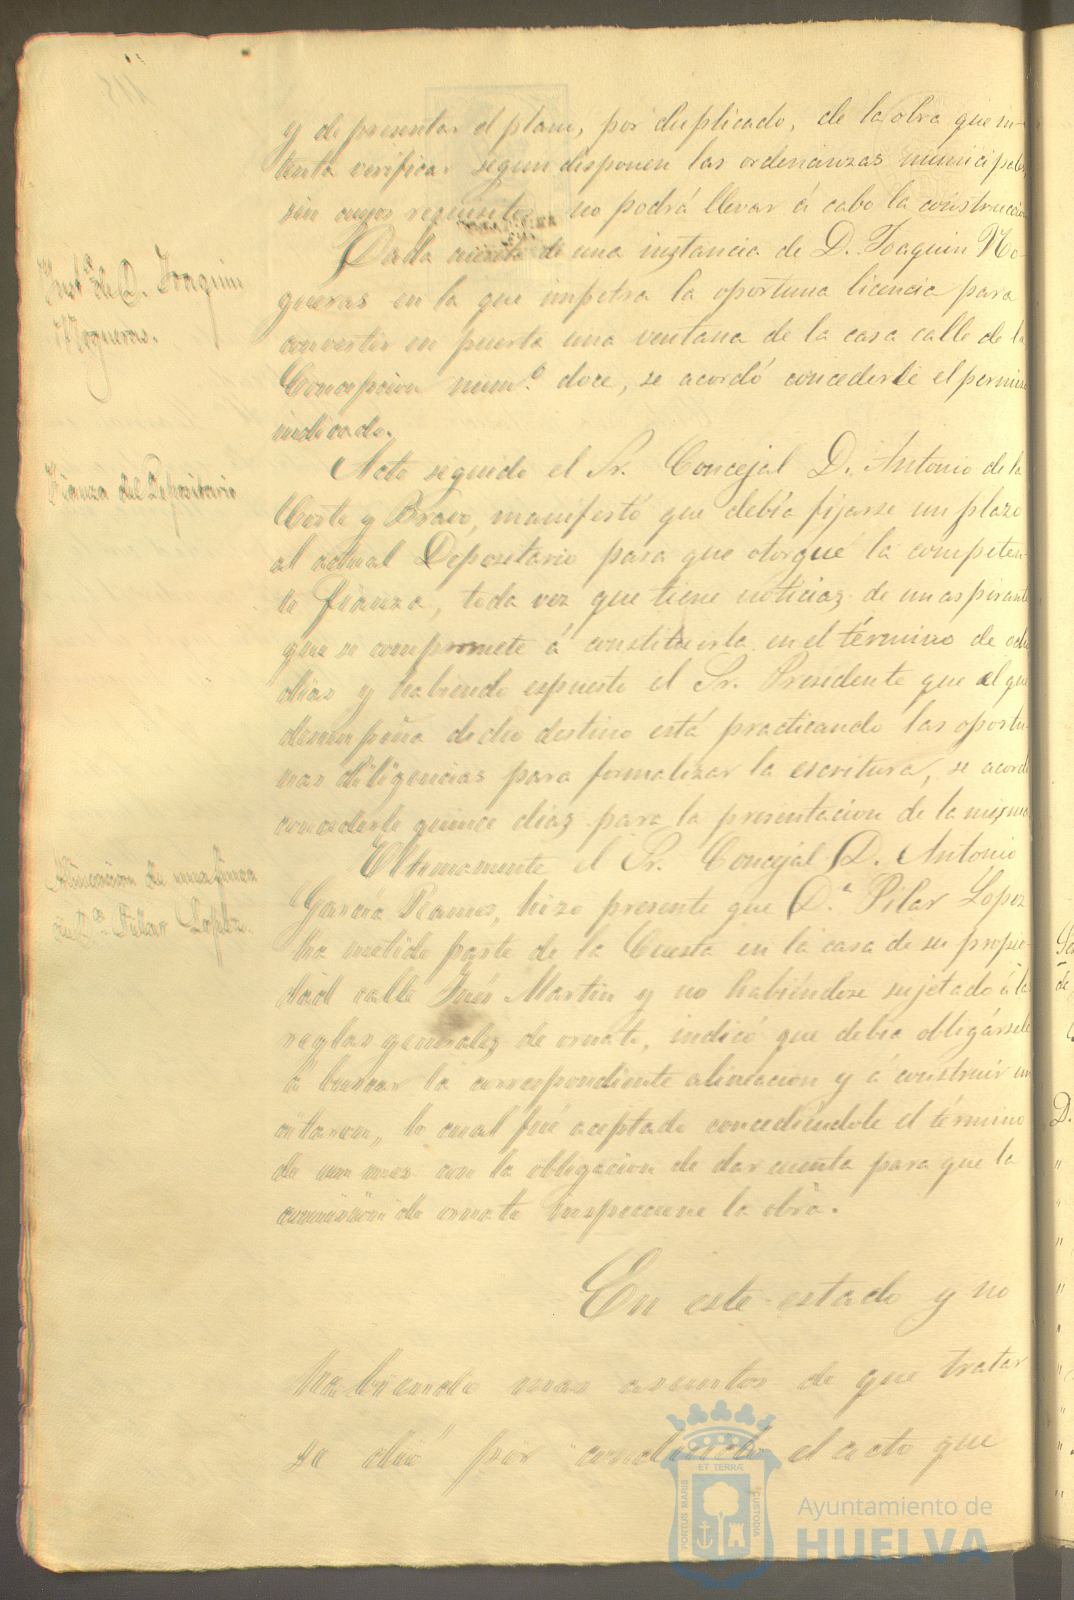 y de presentar el plano, por duplicado, de la obra que in-
tenta verificar segun disponen las ordenanzas municipales,
sin cuyos requisitos no podrá llevar á cabo la construccion
Inst.ª de D. Joaquin
Nogueras.
Dada cuenta de una instancia de D. Joaquin No-
gueras en la que impetra la oportuna licencia para
convertir en puerta una ventana de la casa calle de la
Concepcion num.º doce, se acordó concederle el permiso
indicado.
Fianza del Depositario
Acto seguido el Sr. Concejal D. Antonio de la
Corte y Bravo, manifestó que debía fijarse un plazo
al actual Depositario para que otorgue la competen-
te fianza, toda vez que tiene noticias de un aspirante
que se compromete á constituirla en el término de ocho
dias y habiendo espuesto el Sr. Presidente que el que
desempeña dicho destino está practicando las oportu-
nas diligencias para formalizar la escritura, se acordó
concederle quince dias para la presentacion de la misma
Alineacion de una finca
de D.ª Pilar Lopez.
Ultimamente el Sr. Concejal D. Antonio
García Ramos, hizo presente que D.ª Pilar Lopez
ha metido parte de la Cuesta en la casa de su propie-
dad calle Inés Martin y no habiéndose sujetado á las
reglas generales de ornato, indicó que debia obligársele
á buscar la correspondiente alineacion y á construir un
citaron, lo cual fué aceptado concediéndole el término
de un mes con la obligacion de dar cuenta para que la
comision de ornato inspeccione la obra.
En este estado y no
habiendo mas asuntos de que tratar
se dió por concluido el acto que
PORTUS MARIS
ET TERRÆ
CUSTODIA
Ayuntamiento de
HUELVA